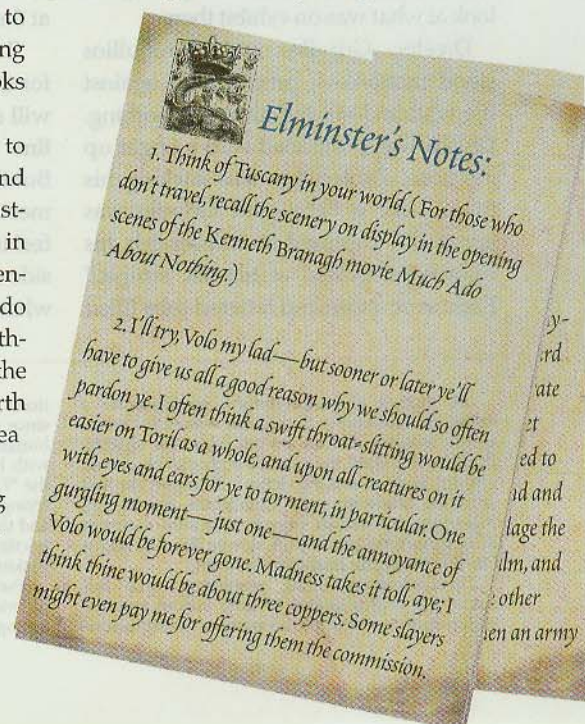 to
ng
oks
to
nd
ist-
in
en-
do
th-
the
rth
ea
g
Elminster's Notes:
1. Think of Tuscany in your world. (For those who
don't travel, recall the scenery on display in the opening
scenes of the Kenneth Branagh movie Much Ado
About Nothing.)
2. I'll try, Volo my lad—but sooner or later ye'll
have to give us all a good reason why we should so often
pardon ye. I often think a swift throat-slitting would be
easier on Toril as a whole, and upon all creatures on it
with eyes and ears for ye to torment, in particular. One
gurgling moment—just one—and the annoyance of
Volo would be forever gone. Madness takes it toll, aye; I
think thine would be about three coppers. Some slayers
might even pay me for offering them the commission.
y-
rd
rate
et
ed to
nd and
lage the
lm, and
other
en an army